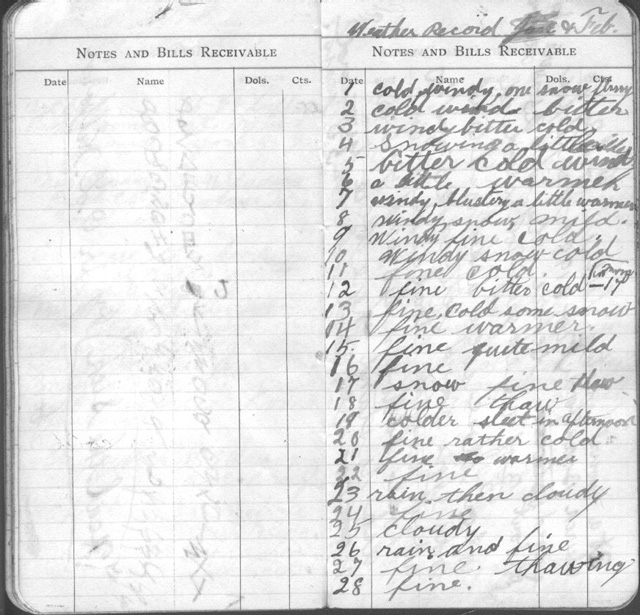 NOTES AND BILLS RECEIVABLE
Date Name Dols. Cts.
Weather Record Jan & Feb.
NOTES AND BILLS RECEIVABLE
Date Name Dols. Cts.
1 cold, windy, one snow
2 cold wind bitter
3 windy bitter cold
4 Snowing a little
5 bitter cold wind
6 a little warmer
7 windy, blustery, a little warmer
8 Windy, snow, mild.
9 Windy fine cold.
10 Windy snow cold
11 fine cold.
12 fine bitter cold -17
13 fine, cold some snow
14 fine warmer.
15. fine quite mild
16 fine
17 snow fine thaw
18 fine thaw
19 colder sleet in afternoon
20 fine rather cold
21 fine warmer
22 fine
23 rain then cloudy
24 fine
25 cloudy
26 rain and fine
27 fine. thawing
28 fine.